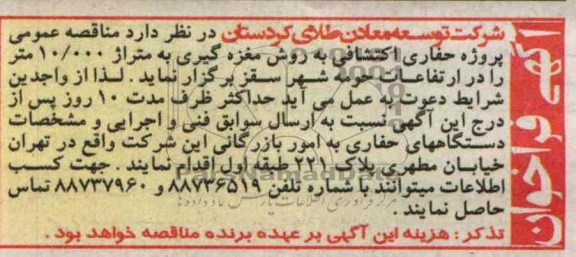 آگهی فراخوان
شرکت توسعه معادن طلای کردستان در نظر دارد مناقصه عمومی
پروژه حفاری اکتشافی به روش مغزه گیری به متراژ ۱۰/۰۰۰ متر
را در ارتفاعات حومه شهر سقز برگزار نماید . لذا از واجدین
شرایط دعوت به عمل می آید حداکثر ظرف مدت ۱۰ روز پس از
درج این آگهی نسبت به ارسال سوابق فنی و اجرایی و مشخصات
دستگاههای حفاری به امور بازرگانی این شرکت واقع در تهران
خیابان مطهری پلاک ۲۲۱ طبقه اول اقدام نمایند . جهت کسب
اطلاعات میتوانند با شماره تلفن ۸۸۷۳۶۵۱۹ و ۸۸۷۳۷۹۶۰ تماس
حاصل نمایند .
تذکر : هزینه این آگهی بر عهده برنده مناقصه خواهد بود .